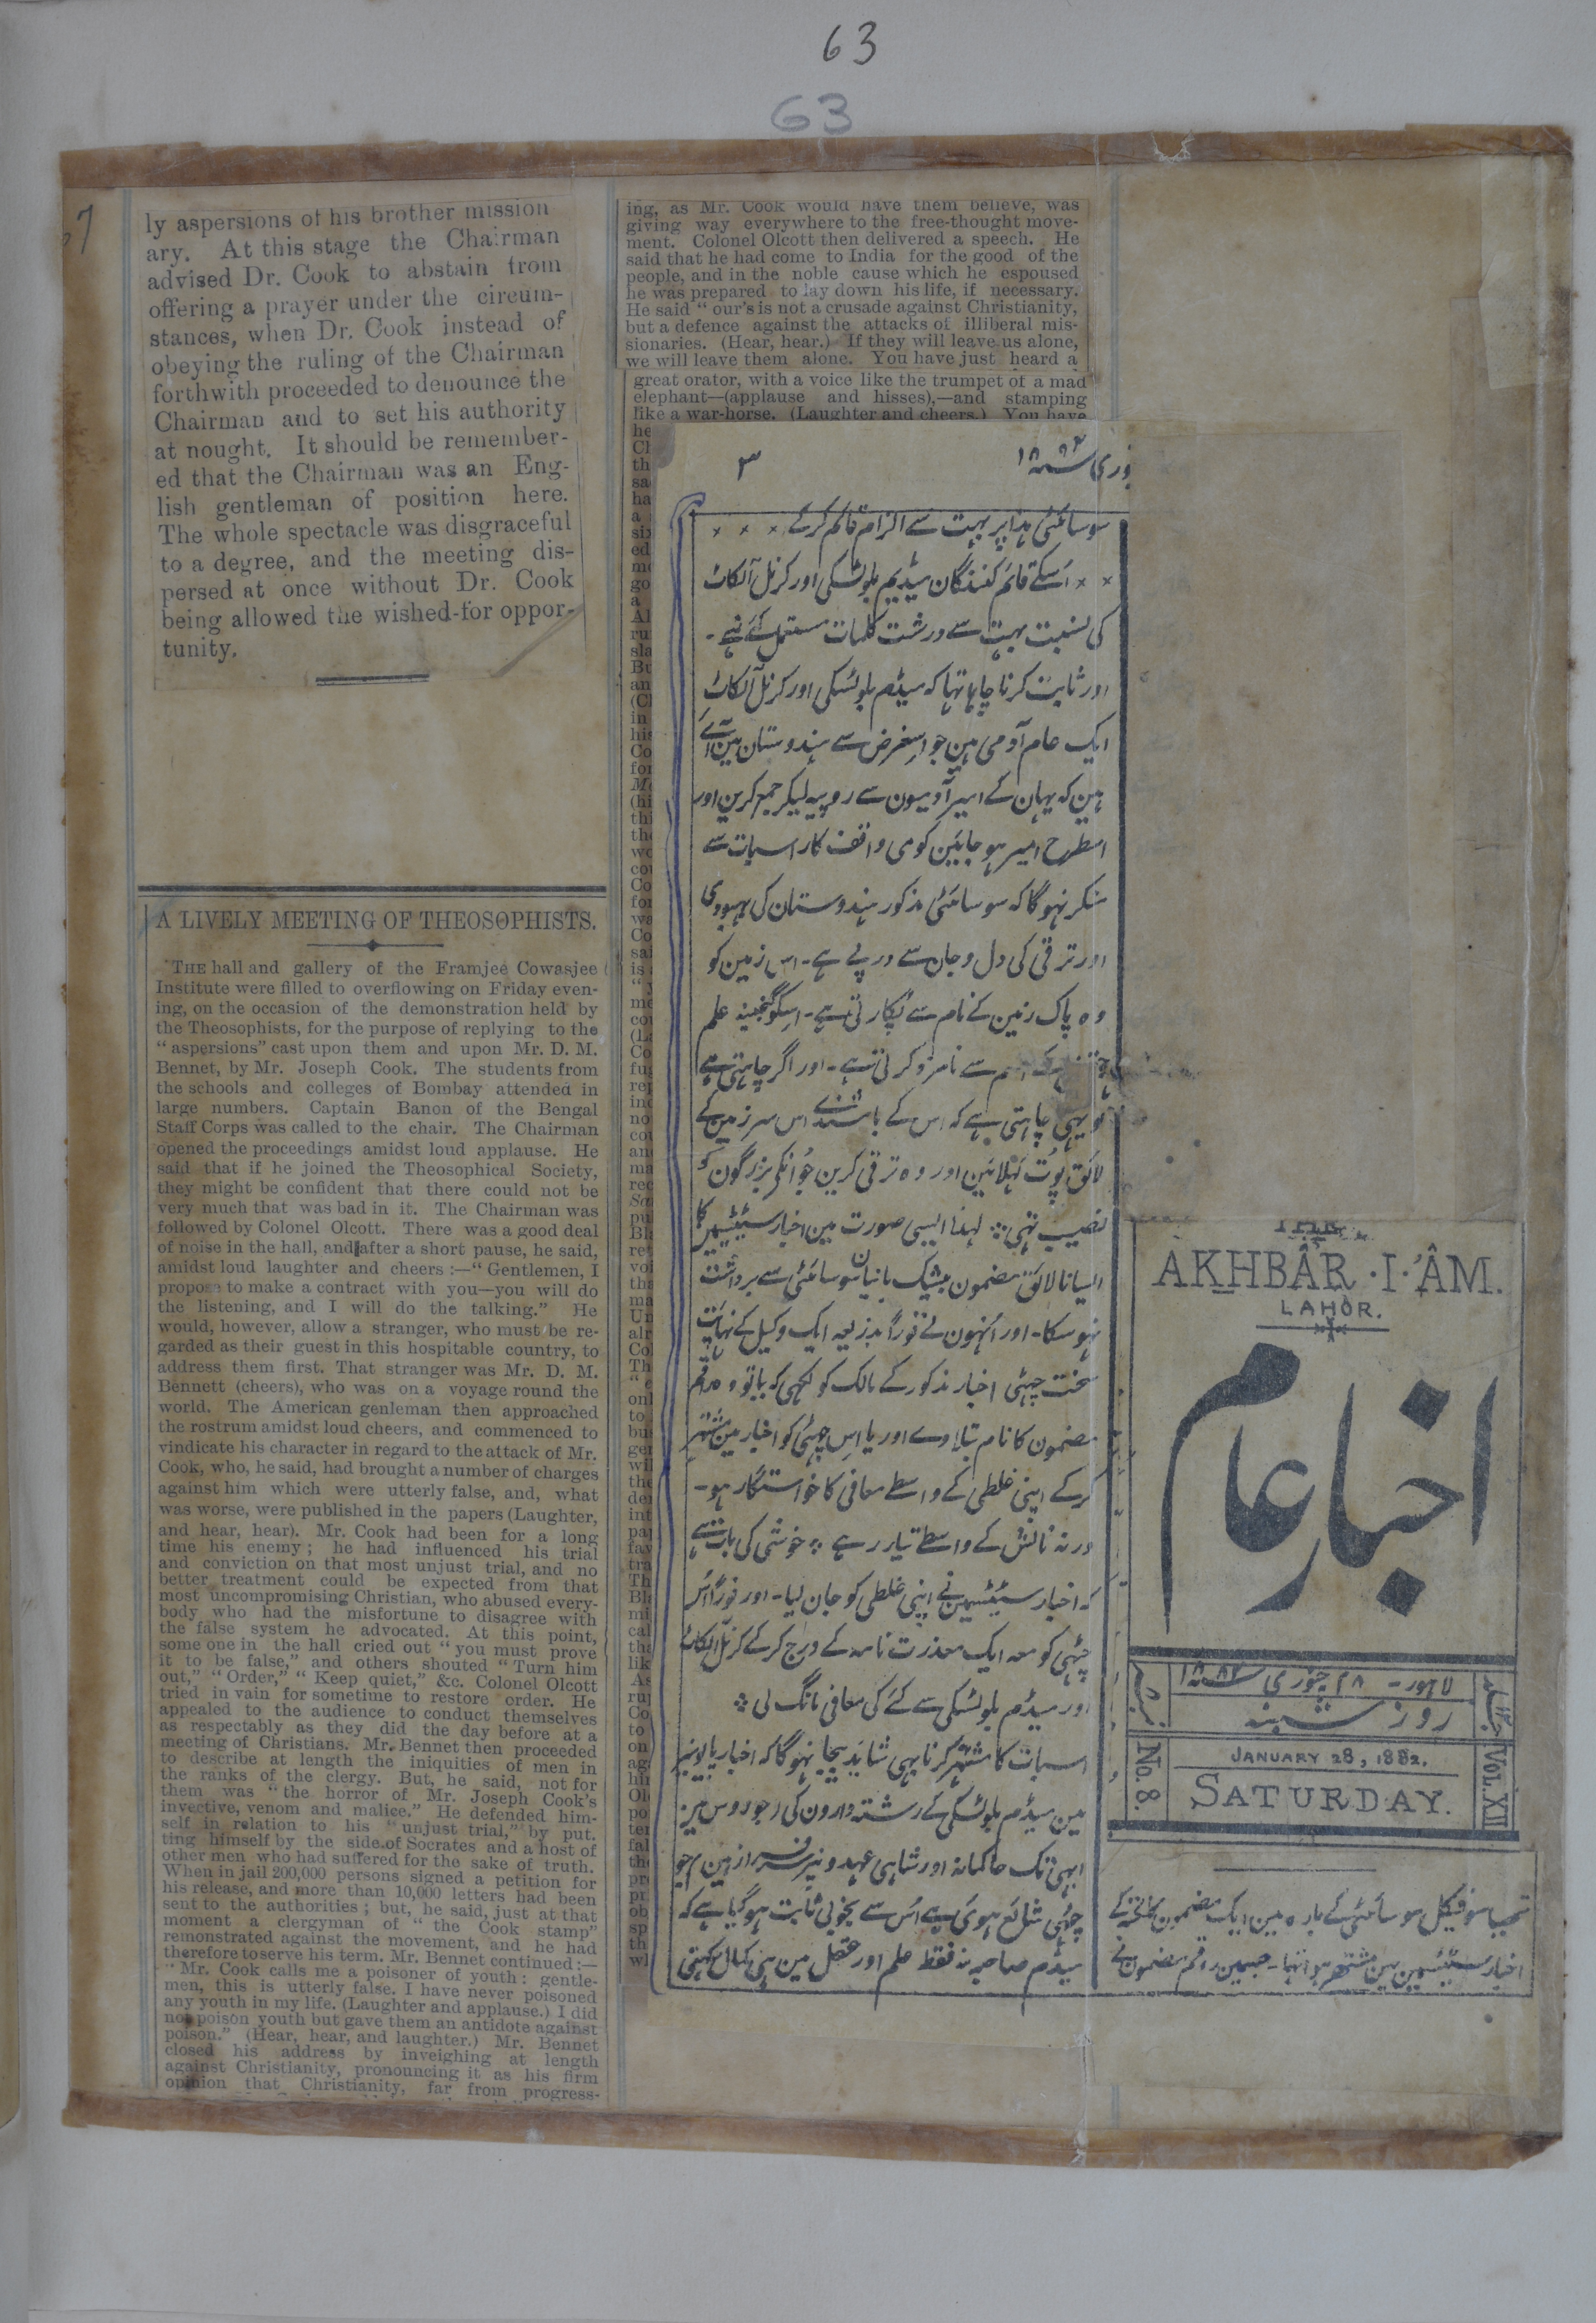 63
63
7
ly aspersions of his brother mission
ary. At this stage the Chairman
advised Dr. Cook to abstain from
offering a prayer under the circum-
stances, when Dr. Cook instead of
obeying the ruling of the Chairman
forthwith proceeded to denounce the
Chairman and to set his authority
at nought. It should be remember-
ed that the Chairman was an Eng-
lish gentleman of position here.
The whole spectacle was disgraceful
to a degree, and the meeting dis-
persed at once without Dr. Cook
being allowed the wished-for oppor-
tunity.
A LIVELY MEETING OF THEOSOPHISTS.
THE hall and gallery of the Framjee Cowasjee
Institute were filled to overflowing on Friday even-
ing, on the occasion of the demonstration held by
the Theosophists, for the purpose of replying to the
"aspersions" cast upon them and upon Mr. D. M.
Bennet, by Mr. Joseph Cook. The students from
the schools and colleges of Bombay attended in
large numbers. Captain Banon of the Bengal
Staff Corps was called to the chair. The Chairman
opened the proceedings amidst loud applause. He
said that if he joined the Theosophical Society,
they might be confident that there could not be
very much that was bad in it. The Chairman was
followed by Colonel Olcott. There was a good deal
of noise in the hall, and after a short pause, he said,
amidst loud laughter and cheers :—" Gentlemen, I
propose to make a contract with you—you will do
the listening, and I will do the talking." He
would, however, allow a stranger, who must be re-
garded as their guest in this hospitable country, to
address them first. That stranger was Mr. D. M.
Bennett (cheers), who was on a voyage round the
world. The American genleman then approached
the rostrum amidst loud cheers, and commenced to
vindicate his character in regard to the attack of Mr.
Cook, who, he said, had brought a number of charges
against him which were utterly false, and, what
was worse, were published in the papers (Laughter,
and hear, hear). Mr. Cook had been for a long
time his enemy ; he had influenced his trial
and conviction on that most unjust trial, and no
better treatment could be expected from that
most uncompromising Christian, who abused every-
body who had the misfortune to disagree with
the false system he advocated. At this point,
some one in the hall cried out " you must prove
it to be false," and others shouted "Turn him
out," "Order," "Keep quiet," &c. Colonel Olcott
tried in vain for sometime to restore order. He
appealed to the audience to conduct themselves
as respectably as they did the day before at a
meeting of Christians. Mr. Bennet then proceeded
to describe at length the iniquities of men in
the ranks of the clergy. But, he said, not for
them was "the horror of Mr. Joseph Cook's
invective, venom and malice." He defended him-
self in relation to his "unjust trial," by put.
ting himself by the side of Socrates and a host of
other men who had suffered for the sake of truth.
When in jail 200,000 persons signed a petition for
his release, and more than 10,000 letters had been
sent to the authorities ; but, he said, just at that
moment a clergyman of " the Cook stamp"
remonstrated against the movement, and he had
therefore to serve his term. Mr. Bennet continued :—
" Mr. Cook calls me a poisoner of youth : gentle-
men, this is utterly false. I have never poisoned
any youth in my life. (Laughter and applause.) I did
not poison youth but gave them an antidote against
poison." (Hear, hear, and laughter.) Mr. Bennet
closed his address by inveighing at length
against Christianity, pronouncing it as his firm
opinion that Christianity, far from progress-
ing, as Mr. Cook would have them believe, was
giving way everywhere to the free-thought move-
ment. Colonel Olcott then delivered a speech. He
said that he had come to India for the good of the
people, and in the noble cause which he espoused
he was prepared to lay down his life, if necessary.
He said " our's is not a crusade against Christianity,
but a defence against the attacks of illiberal mis-
sionaries. (Hear, hear.) If they will leave us alone,
we will leave them alone. You have just heard a
great orator, with a voice like the trumpet of a mad
elephant—(applause and hisses),—and stamping
like a war-horse. (Laughter and cheers.) You have
AKHBÂR·I·ÂM.
LAHÒR.
اخبار عام
لاہور - ۲۸ جنوری ۱۸۸۲
روز شنبہ
No. 8.
JANUARY 28, 1882.
SATURDAY.
VOL. XII
تھیاسوفیکل سوسائٹی کے بارہ مین ایک مضمون کلکتہ کے
اخبار سٹیٹسمین مین مشتہر ہوا تہا۔ جسمین راقم مضمون نے
۳
سوسائٹی ہذا پر بہت سے الزام قائم کرکے × × ×
× × اُسکے قائم کنندگان میڈیم بلوٹسکی اور کرنل آلکاٹ
کی نسبت بہت سے درشت کلمات مستعمل کئے تہے۔
اور ثابت کرنا چاہا تہا کہ میڈم بلوٹسکی اور کرنل آلکاٹ
ایک عام آدمی ہین جو اسغرض سے ہندوستان مین آئے
ہین کہ یہان کے امیر آدمیون سے روپیہ لیکر جمع کرین اور
اسطرح امیر ہو جائین کوئی واقف کار اسبات سے
منکر نہوگا کہ سوسائٹی مذکور ہندوستان کی بہبودی
اور ترقی کی دل و جان سے درپے ہے۔ اس زمین کو
وہ پاک زمین کے نام سے پکارتی ہے۔ اسکو گنجینہ علم
سے نامزد کرتی ہے۔ اور اگر چاہتی ہے
تو یہی چاہتی ہے کہ اس کے باشندے اس سرزمین کے
لائق پوت کہلائین اور وہ ترقی کرین جو انکے بزرگون کو
نصیب تہی ؞ لہذا ایسی صورت مین اخبار سٹیٹسمین کا
ایسا نالائق مضمون بیشک بانیان سوسائٹی سے برداشت
نہوسکا۔ اور اُنہون نے فوراً بذریعہ ایک وکیل کے نہایت
سخت چٹہی اخبار مذکور کے مالک کو لکہی کہ یا تو وہ راقم
مضمون کا نام بتلاوے اور یا اس چٹہی کو اخبار مین مشتہر
کرکے اپنی غلطی کے واسطے معافی کا خواستگار ہو۔
ورنہ نالش کے واسطے تیار رہے ؞ خوشی کی بات ہے
کہ اخبار سٹیٹسمین نے اپنی غلطی کو جان لیا۔ اور فوراً اُس
چٹہی کو معہ ایک معذرت نامہ کے درج کرکے کرنل آلکاٹ
اور میڈم بلوٹسکی سے کئے کی معافی مانگ لی ؞
اسبات کا مشتہر کرنا بہی شائد بیجا نہوگا کہ اخبار پایونیر
مین میڈم بلوٹسکی کے رشتہ دارون کی (جو روس مین
ابہی تک حاکمانہ اور شاہی عہدون پر سرفراز ہین) جو
چٹہی شائع ہوئی ہے اُس سے بخوبی ثابت ہوگیا ہے کہ
میڈم صاحبہ نہ فقط علم اور عقل مین ہی کمال رکہتی